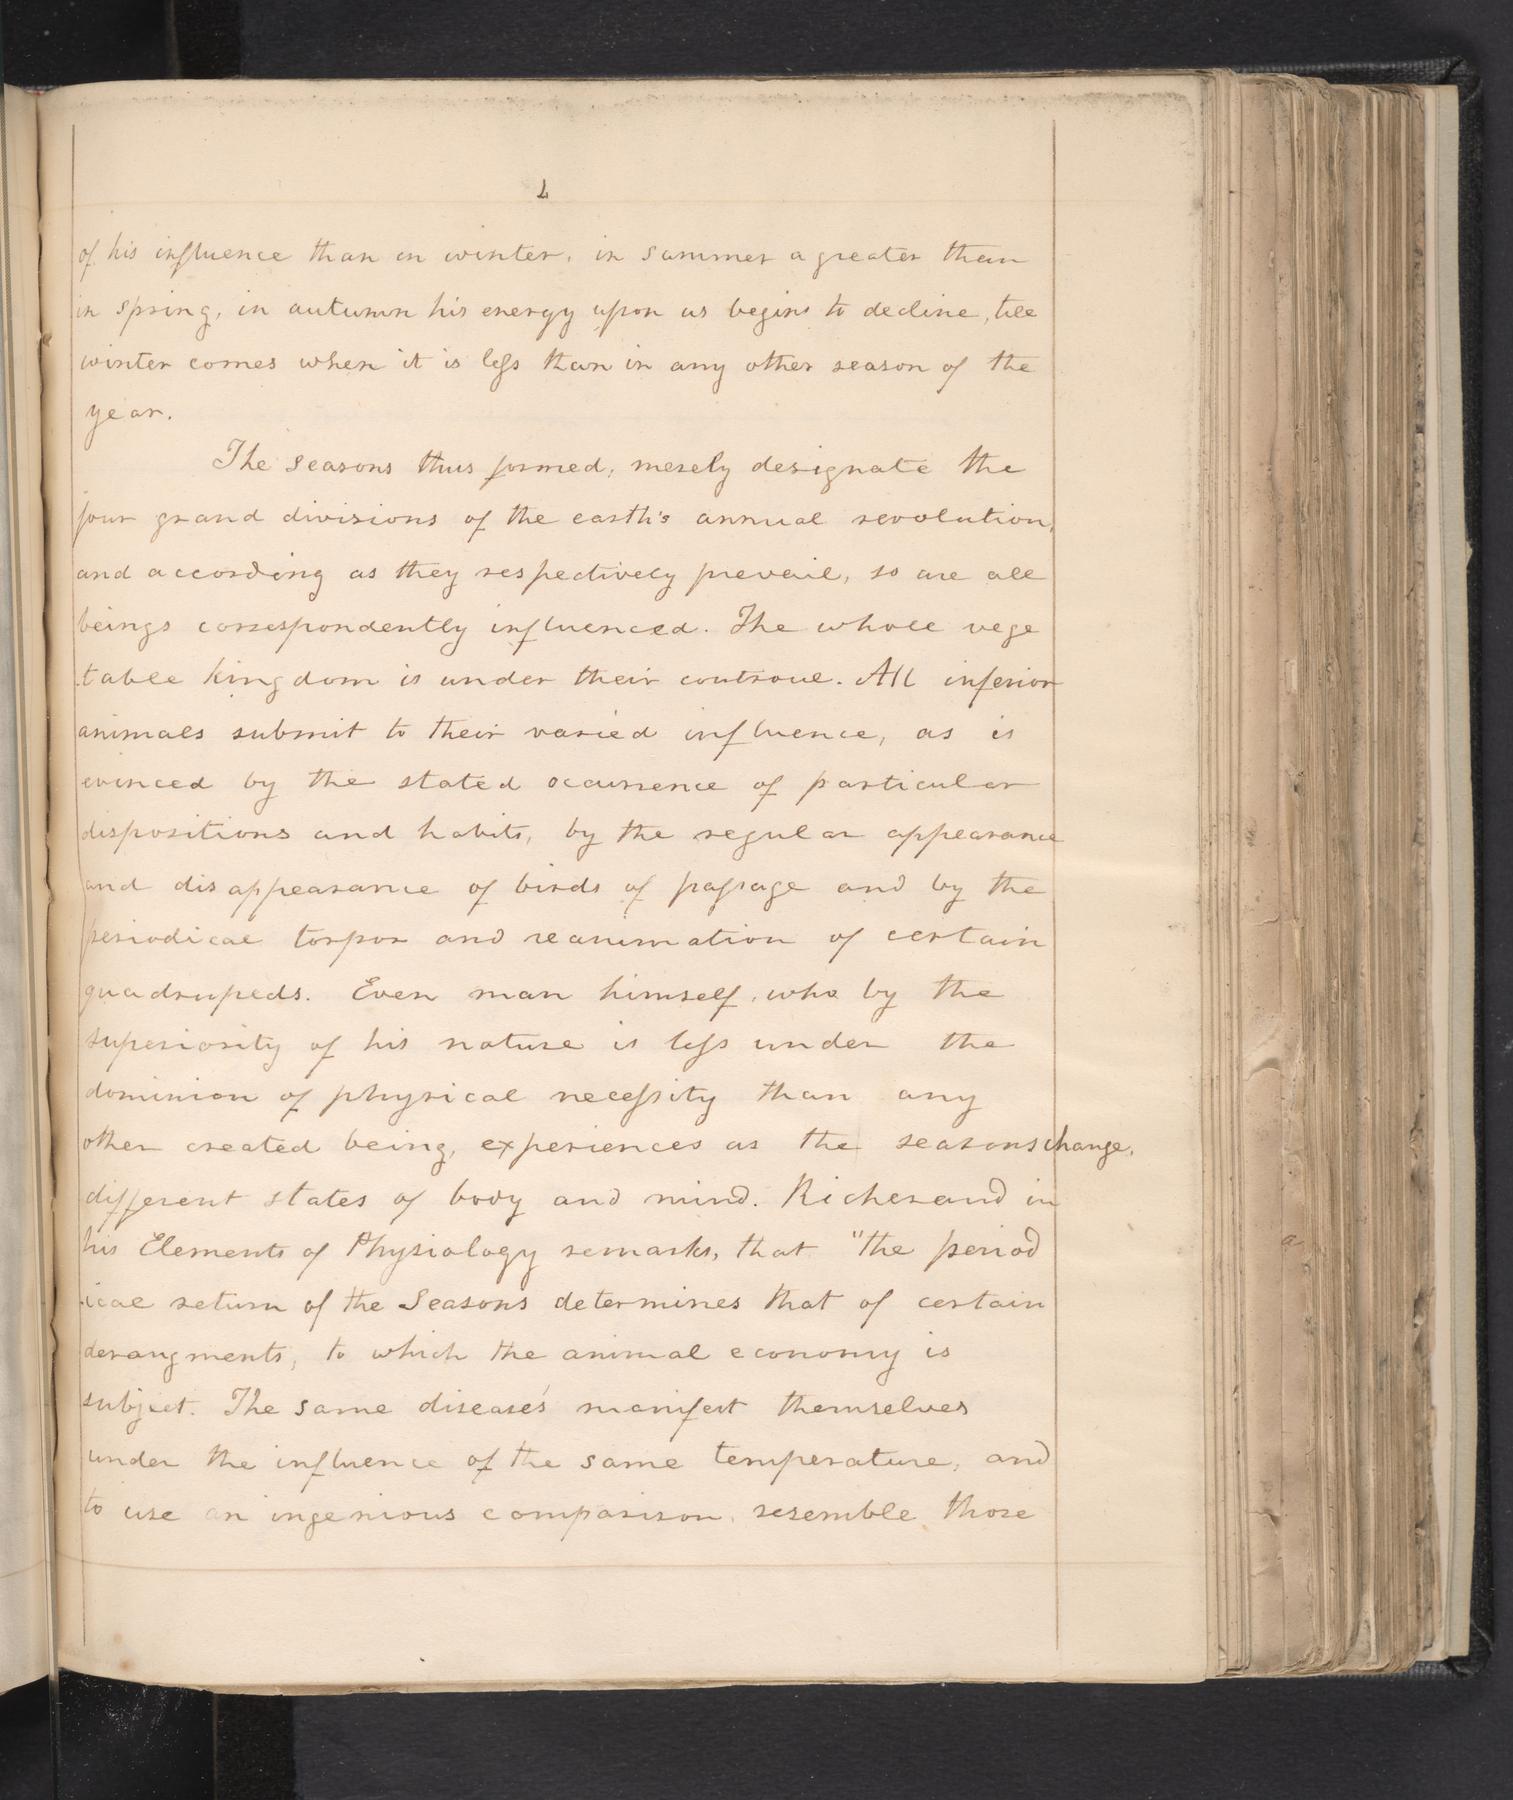 4
of his influence than in winter, in summer a greater than
in spring, in autumn his energy upon us begins to decline, till
winter comes when it is less than in any other season of the
year.
The seasons thus formed, merely designate the
four grand divisions of the earth's annual revolution,
and according as they respectively prevail, so are all
beings correspondently influenced. The whole vege
table kingdom is under their controul. All inferior
animals submit to their varied influence, as is
evinced by the stated occurrence of particular
dispositions and habits, by the regular appearance
and disappearance of birds of passage and by the
periodical torpor and reanimation of certain
quadrupeds. Even man himself, who by the
superiority of his nature is less under the
dominion of physical necessity than any
other created being, experiences as the seasons change,
different states of body and mind. Richerand in
his Elements of Physiology remarks, that "the period
ical return of the Seasons determines that of certain
derangments, to which the animal economy is
subject. The same diseases manifest themselves
under the influence of the same temperature, and
to use an ingenious comparison, resemble those